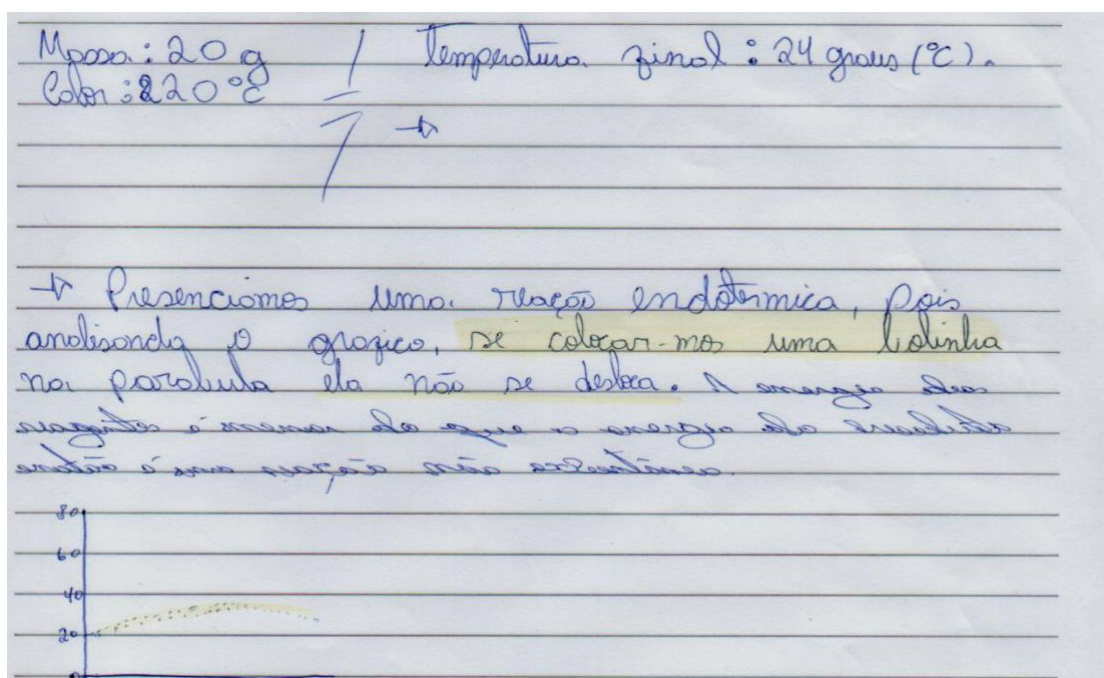 Massa: 20 g / Temperatura final: 24 graus (°C).
Calor: 220°C
→ Presenciamos uma reação endotermica, pois
analisando o grafico, se colocar-mos uma bolinha
na parabula ela não se desloca. A energia dos
reagentes é menor do que a energia do produto
então é uma reação não espontânea.
80
60
40
20
0